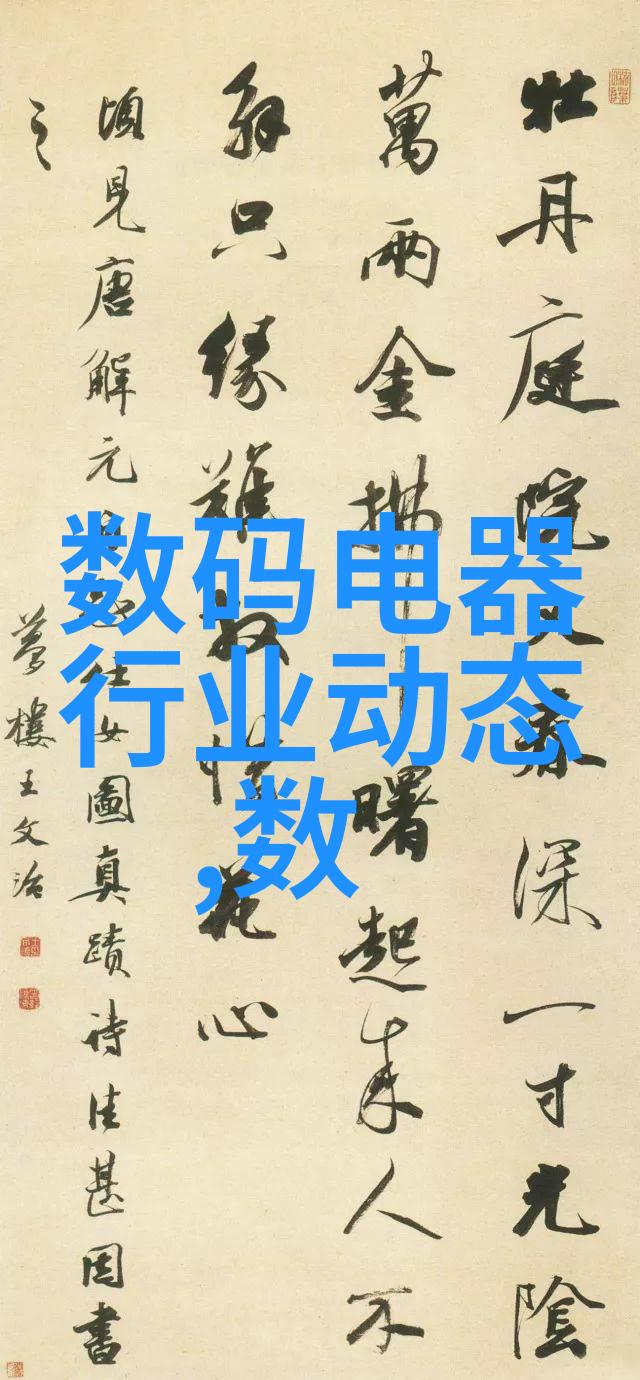 数码电器
行业动态
,数
牡丹庭院又春深一寸光陰
萬兩金拂曙起來人不
解只緣難放惜花心
頃見唐解元仕女圖真蹟詩佳甚因書
之
夢樓王文治